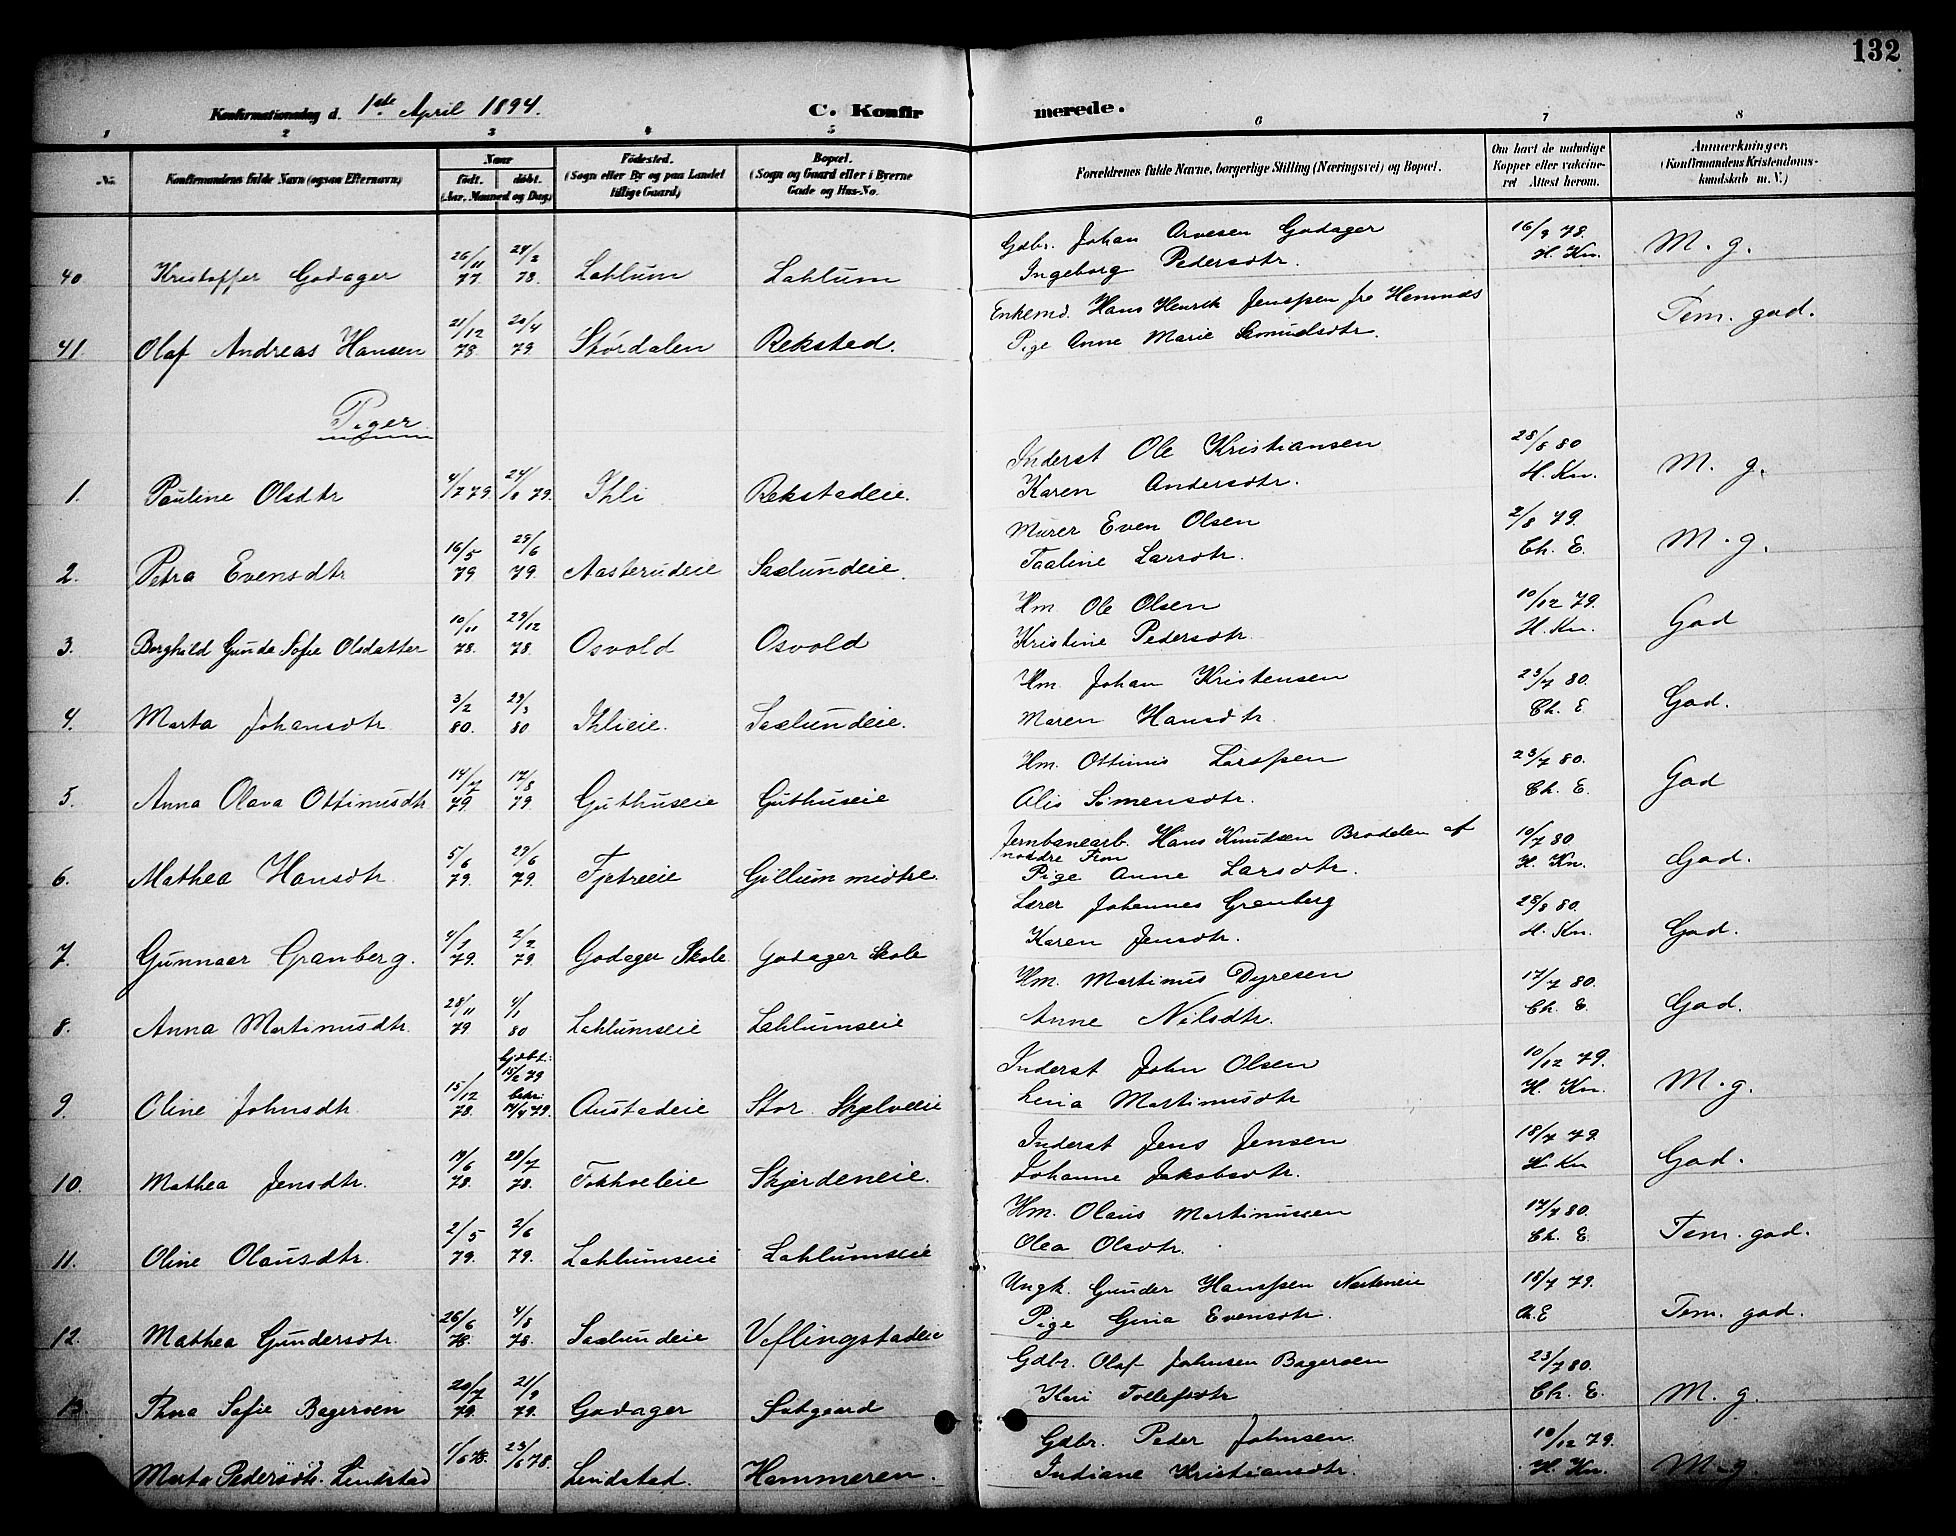 132
Konfirmationsdag d. 1ste April 1894.
C. Konfirmerede.
1 2 3 4 5 6 7 8
No.
Konfirmandens fulde Navn (ogsaa Efternavn)
Naar
født. døbt.
(Aar, Maaned og Dag)
Fødested.
(Sogn eller By og paa Landet
tillige Gaard)
Bopæl.
(Sogn og Gaard eller i Byerne
Gade og Hus-No.
Forældrenes fulde Navne, borgerlige Stilling (Næringsvei) og Bopæl.
Om havt de naturlige
Kopper eller vaccine-
ret Attest herom.
Anmærkninger.
(Konfirmandens Kristendoms-
kundskab m. V.)
Gdbr. Johan Arvesen Godager 16/9 78.
26/11 24/2 Ingeborg Pedersdtr. H. Kn. M. g.
40 Kristoffer Godager 77. 78. Lahlum Lahlum
21/12 20/4 Enkemd. Hans Henrik Jenssen fra Hemnes Tem. god.
41. Olaf Andreas Hansen 78. 79. Stordalen Rekstad. Pige Anne Marie Samuelsdtr.
Piger
Inderst Ole Kristiansen 28/8 80
1. Pauline Olsdtr 4/7 79. 24/8 79. Ihli Rekstadeie. Karen Andersdtr. H. Kn. M. g.
16/5 29/6 Murer Even Olsen 2/8 79.
2. Petra Evensdtr 79 79. Aasterudeie Saxlundeie. Taaline Larsdtr. Ch. E. M. g.
10/11 29/12 Hm. Ole Olsen 10/12 79.
3. Borghild Gunda Sofie Olsdatter 78. 78. Osvold Osvold Kristine Pedersdtr. H. Kn. God
3/2 29/3 Hm. Johan Kristensen 23/7 80.
4. Marta Johansdtr 80. 80 Ihlieie. Saxlundeie. Maren Hansdtr. Ch. E God.
14/7 17/8 Hm. Ottinus Larssen 23/7 80.
5. Anna Olava Ottinusdtr 79. 79. Guthuseie Guthuseie Alis Simensdtr. Ch. E. God
5/6 29/6 Jernbanearb. Hans Knudsen Bradalen af 10/7 80
nordre Fron
6. Mathea Hansdtr. 79. 79. Fjetreeie Gillum midtre. Pige Anne Larsdtr. H. Kn. God.
4/1 2/2 Lærer Johannes Granberg 28/8 80.
7. Gunnaar Granberg. 79. 79 Godager Skole. Godager Skole Karen Jensdtr. H. Kn. God.
28/11 4/1 Hm. Martinus Dyresen 17/7 80.
8. Anna Martinusdtr. 79 80 Lahlumseie Lahlumseie Anne Nilsdtr. Ch. E. God.
Gjdbt:
15/2 79
15/12 bekr: Inderst John Olsen 10/12 79.
9. Oline Johnsdtr. 78. 14/4 79. Austadeie Stor. Skjelveeie Lina Martinusdtr H. Kn. M. g.
19/6 28/7 Inderst Jens Jensen 18/7 79.
10. Mathea Jensdtr. 78. 78. Fokholeie Skjerdeneie. Johanne Jakobsdtr. H. Kn God.
2/5 2/6 Hm. Olaus Martinussen 17/7 80.
11. Oline Olausdtr. 79. 79. Lahlumseie Lahlumseie Olea Olsdtr. Ch. E. Tem. god.
26/6 4/8 Ungk. Gunder Hanssen 18/7 79.
12. Mathea Gundersdtr. 78. 78. Saxlundeie Veflingstadeie Pige Gina Evensdtr. Ch. E Tem. god.
20/7 21/9 Gdbr. Olaf Johnsen Bagerøen 23/7 80.
13. Thea Sofie Bagerøen 79. 79. Godager Kari Tollefsdtr Ch. E. M. g.
Gdbr. Peder Johnsen. 10/12 79.
Marta Pedersdtr. Lindstad 1/6 78. 23/6 78. Lindstad. Hammeren. Indiane Kristiansdtr. H. Kn. M. g.